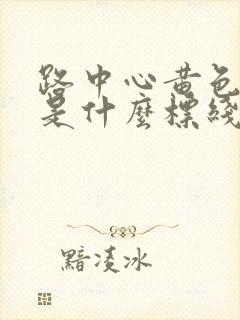 路中心黄色
是什麼標綫
黯凌冰